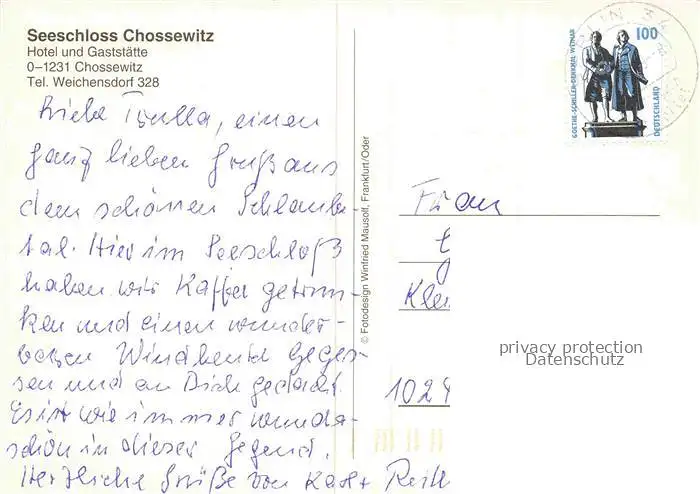 Seeschloss Chossewitz
Hotel und Gaststätte
0–1231 Chossewitz
Tel. Weichensdorf 328
einen
ganz lieben Gruß aus
dem schönen Schlaube-
tal. Hier im Seeschloß
haben wir Kaffee getrun-
ken und einen wunder-
baren Windbeutel geges-
sen und an Dich gedacht.
Es ist wie immer wunder-
schön in dieser Gegend.
Herzliche Grüße von
© Fotodesign Winfried Mausolf, Frankfurt/Oder
GOETHE-SCHILLER-DENKMAL WEIMAR
100
DEUTSCHLAND
BERLIN
Frau
Klei
privacy protection
Datenschutz